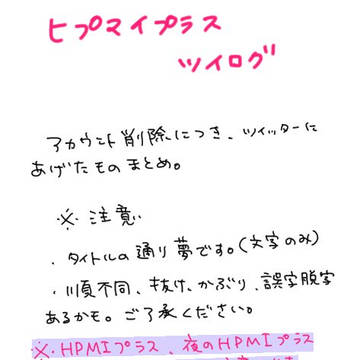 ヒプマイプラス
ツイログ
アカウント削除につき、ツイッターに
あげたものまとめ。
※注意
・タイトルの通り夢です。(文字のみ)
・順不同、抜け、かぶり、誤字脱字
あるかも。ご了承ください。
※HPMIプラス、夜のHPMIプラス